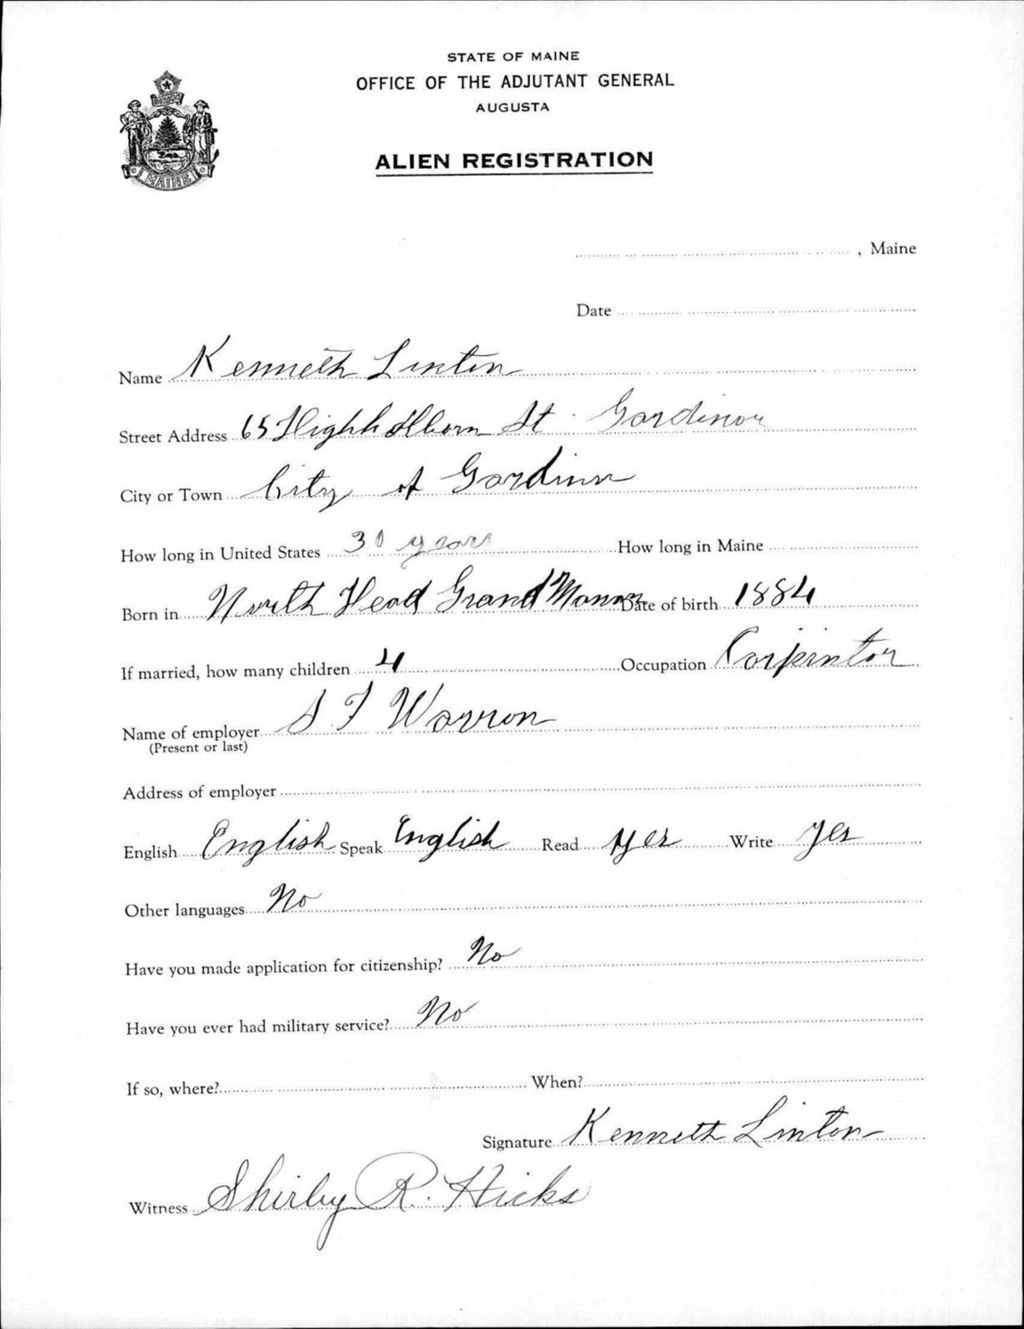 STATE OF MAINE
OFFICE OF THE ADJUTANT GENERAL
AUGUSTA
ALIEN REGISTRATION
MAINE
, Maine
Date
Name Kenneth Linton
Street Address 65 Highholborn St Gardiner
City or Town City of Gardiner
How long in United States 30 years How long in Maine
Born in North Head Grand Manan Date of birth 1884
If married, how many children 4 Occupation Carpintor
Name of employer S F Warron
(Present or last)
Address of employer
English English Speak English Read yes Write yes
Other languages No
Have you made application for citizenship? No
Have you ever had military service? No
If so, where? When?
Signature Kenneth Linton
Witness Shirley R. Hicks